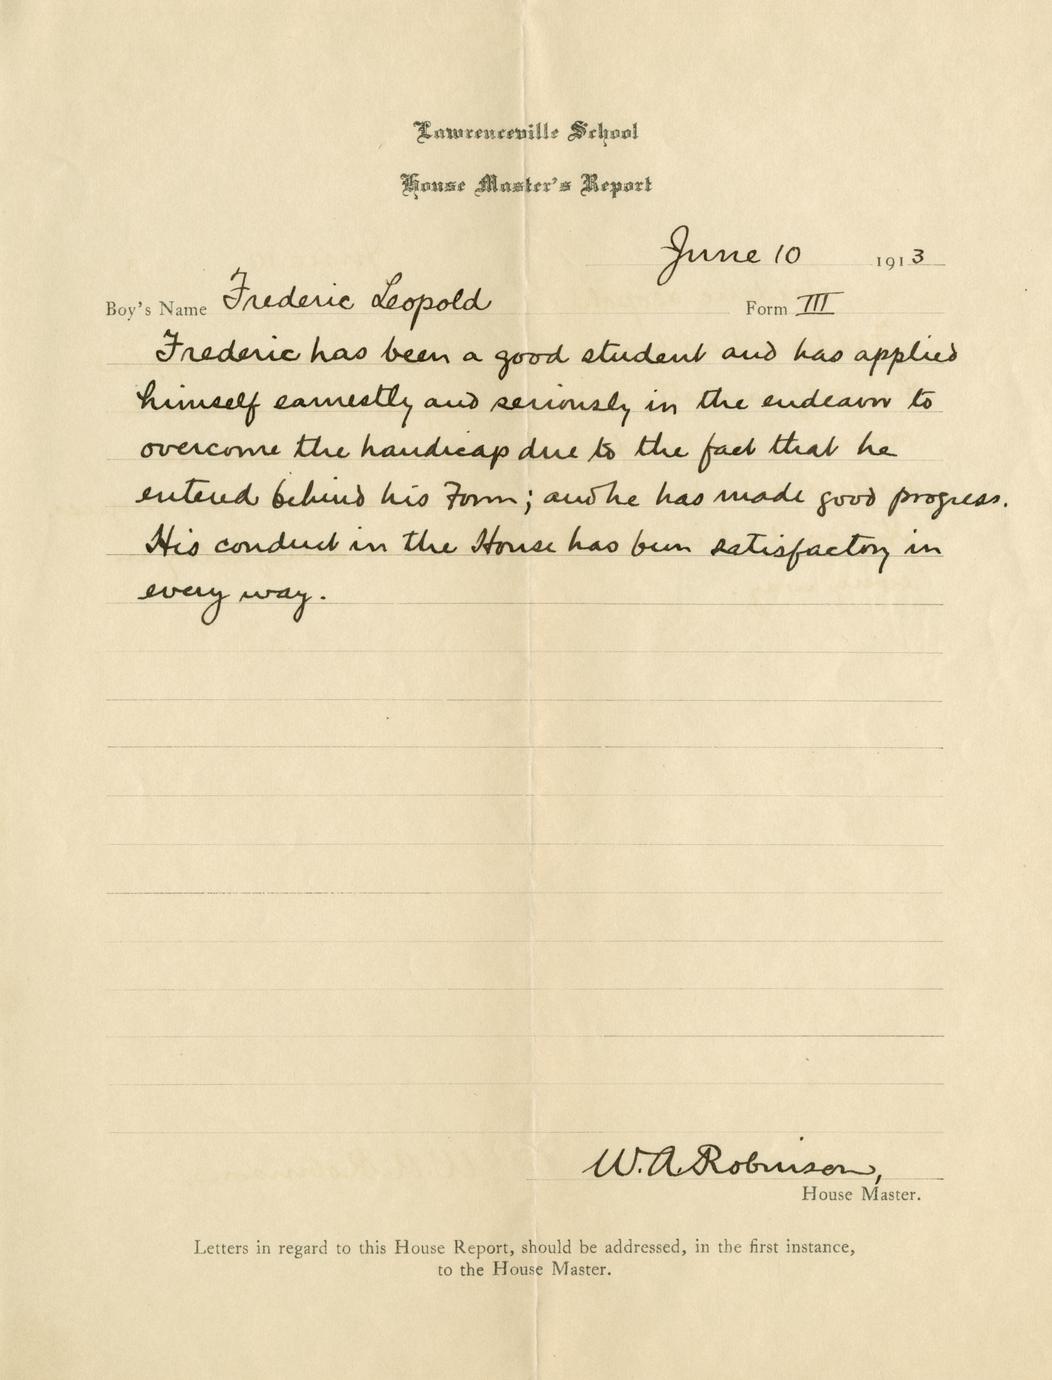 Lawrenceville School
House Master's Report
June 10 1913
Boy's Name Frederic Leopold Form III
Frederic has been a good student and has applied
himself earnestly and seriously in the endeavor to
overcome the handicap due to the fact that he
entered behind his Form; and he has made good progress.
His conduct in the House has been satisfactory in
every way.
W. A. Robinson,
House Master.
Letters in regard to this House Report, should be addressed, in the first instance,
to the House Master.